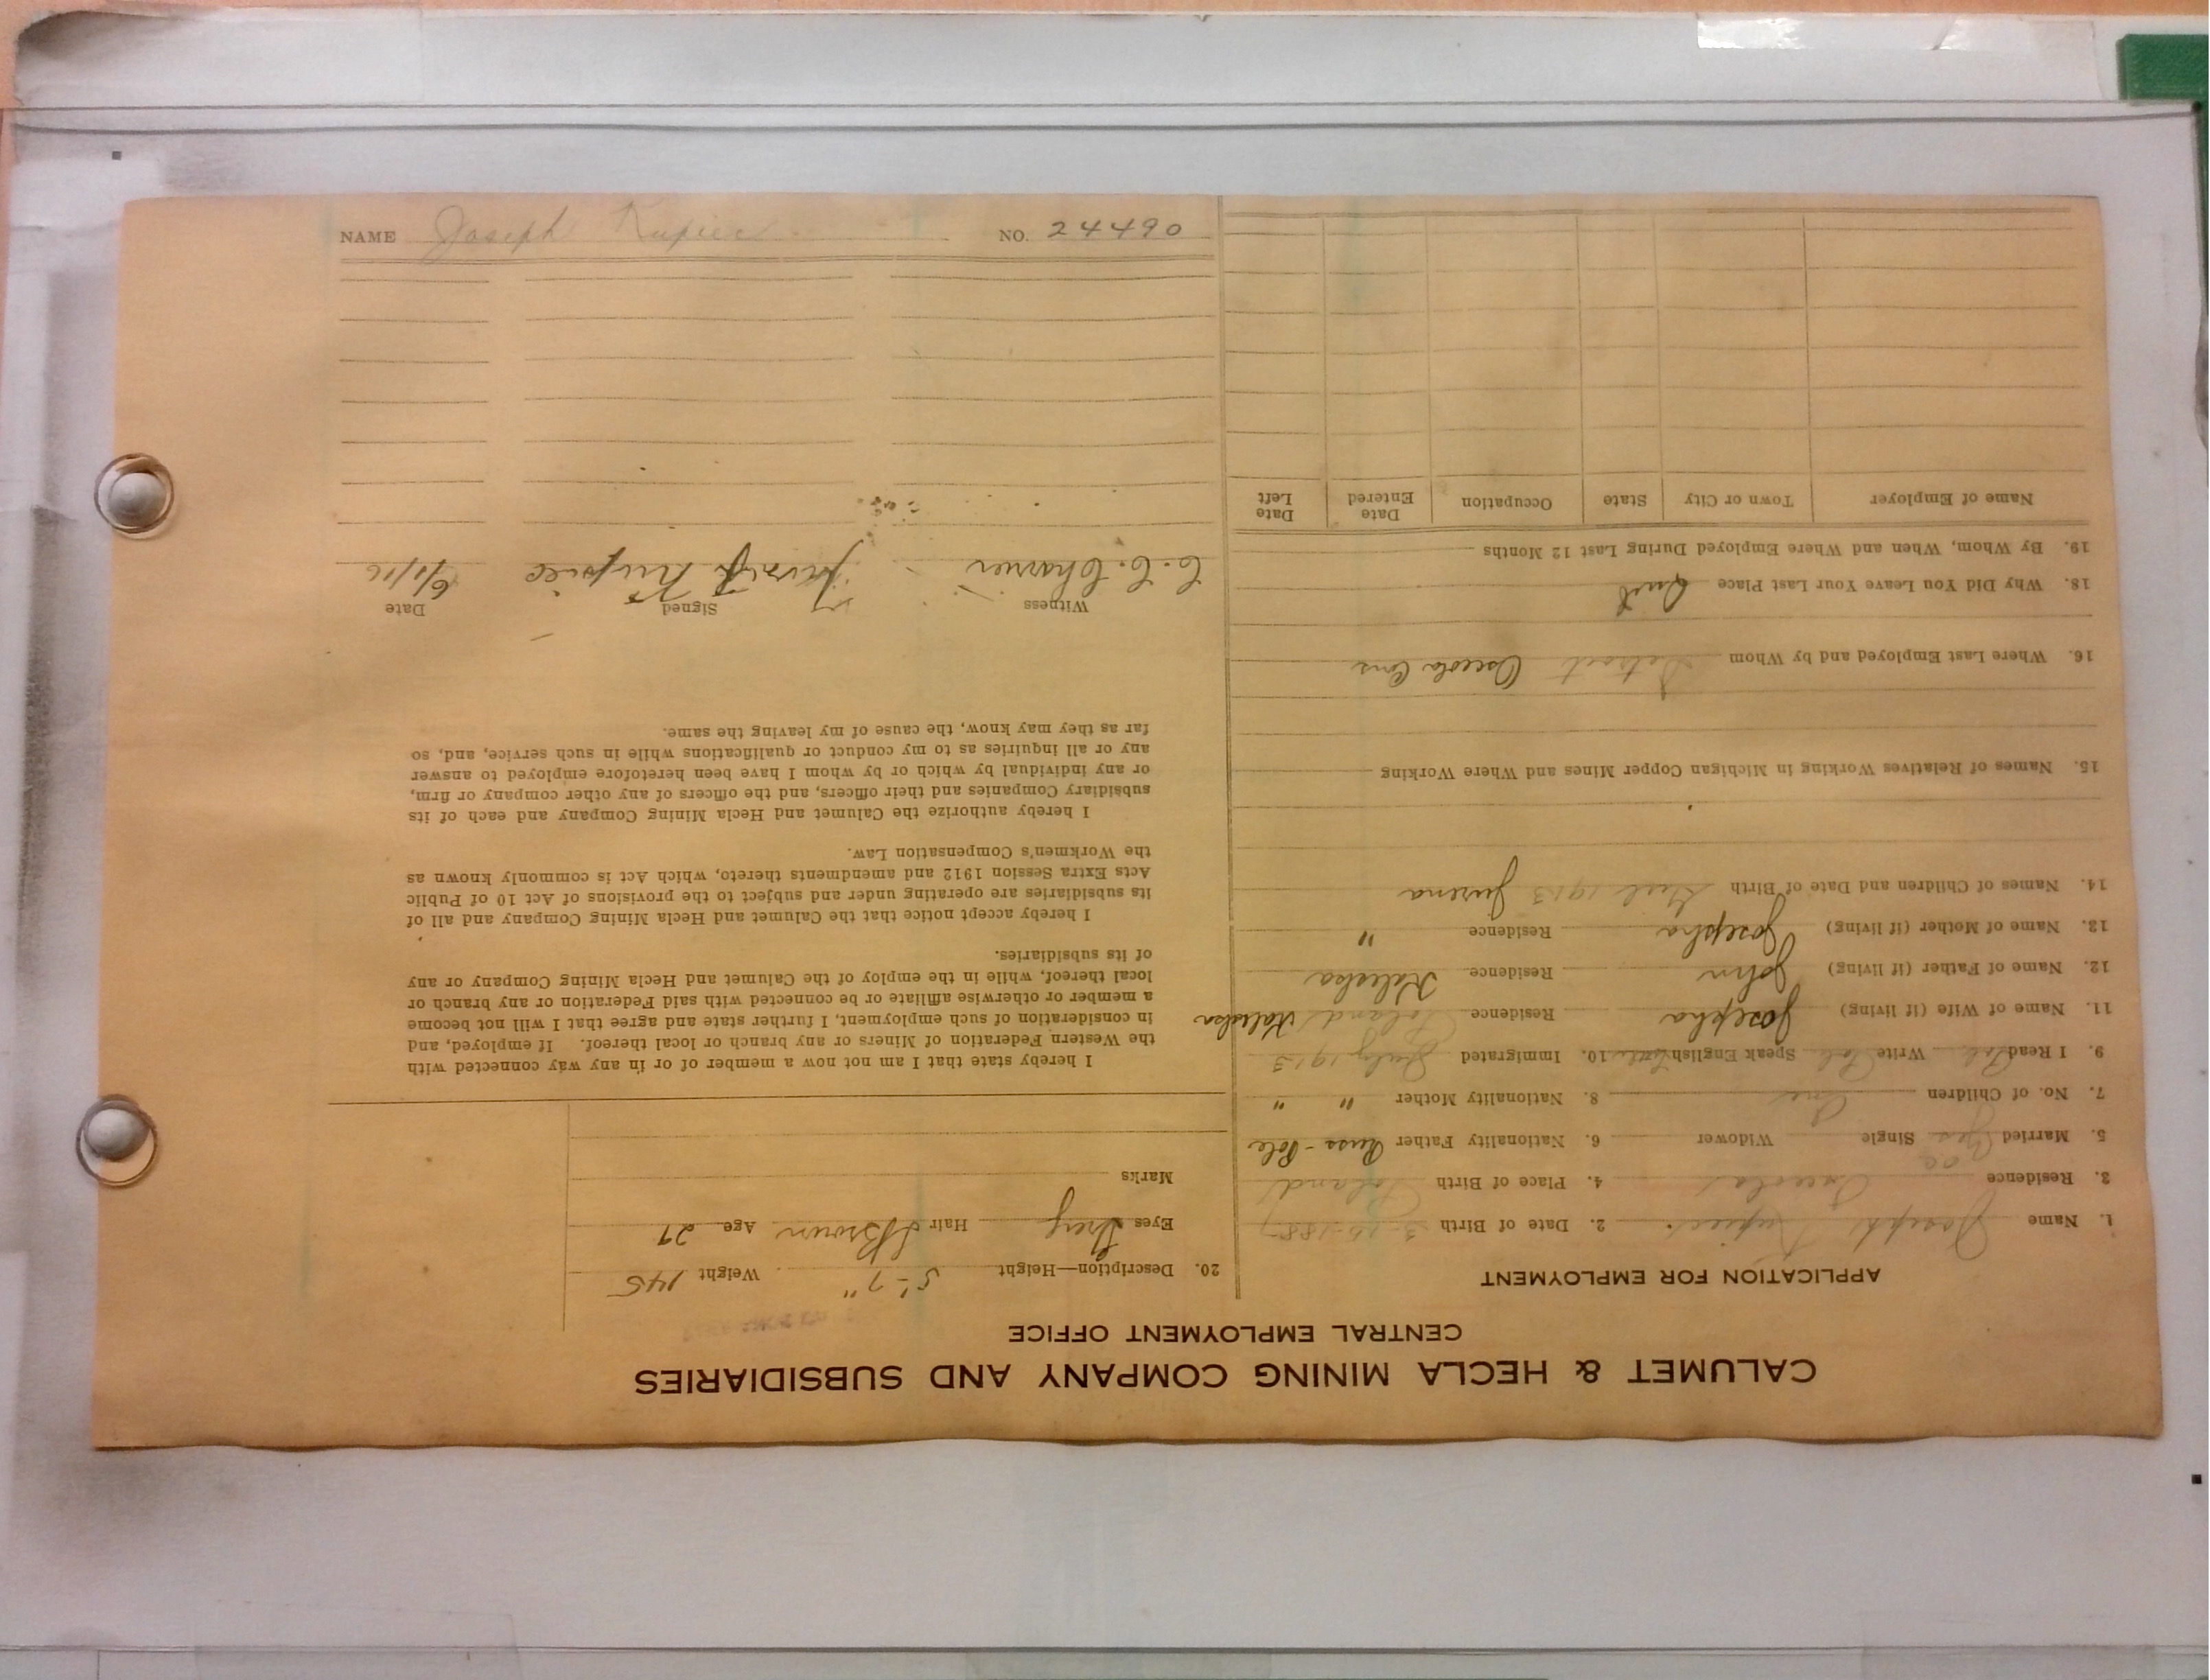 CALUMET & HECLA MINING COMPANY AND SUBSIDIARIES
CENTRAL EMPLOYMENT OFFICE
APPLICATION FOR EMPLOYMENT
1. Name Joseph Kupiec 2. Date of Birth 3-15-188
3. Residence Osceola 4. Place of Birth Poland
5. Married Yes Single Widower 6. Nationality Father Russ-Pole
7. No. of Children One 8. Nationality Mother " "
9. I Read Pol Write Pol Speak English 10. Immigrated July 1913
11. Name of Wife (if living) Josepha Residence Poland Kaliska
12. Name of Father (if living) John Residence Kaliska
13. Name of Mother (if living) Josepha Residence "
14. Names of Children and Date of Birth Girl 1913
15. Names of Relatives Working in Michigan Copper Mines and Where Working
16. Where Last Employed and by Whom Detroit Osceola Cons
18. Why Did You Leave Your Last Place Quit
19. By Whom, When and Where Employed During Last 12 Months
Name of Employer Town or City State Occupation Date Entered Date Left
20. Description—Height 5'-7" Weight 145
Eyes Grey Hair Brown Age 29
Marks
I hereby state that I am not now a member of or in any way connected with
the Western Federation of Miners or any branch or local thereof. If employed, and
in consideration of such employment, I further state and agree that I will not become
a member or otherwise affiliate or be connected with said Federation or any branch or
local thereof, while in the employ of the Calumet and Hecla Mining Company or any
of its subsidiaries.
I hereby accept notice that the Calumet and Hecla Mining Company and all of
its subsidiaries are operating under and subject to the provisions of Act 10 of Public
Acts Extra Session 1912 and amendments thereto, which Act is commonly known as
the Workmen's Compensation Law.
I hereby authorize the Calumet and Hecla Mining Company and each of its
subsidiary Companies and their officers, and the officers of any other company or firm,
or any individual by which or by whom I have been heretofore employed to answer
any or all inquiries as to my conduct or qualifications while in such service, and, so
far as they may know, the cause of my leaving the same.
Witness Signed Date
C. C. Kupiec 6/1/16
NAME Joseph Kupiec NO. 24490